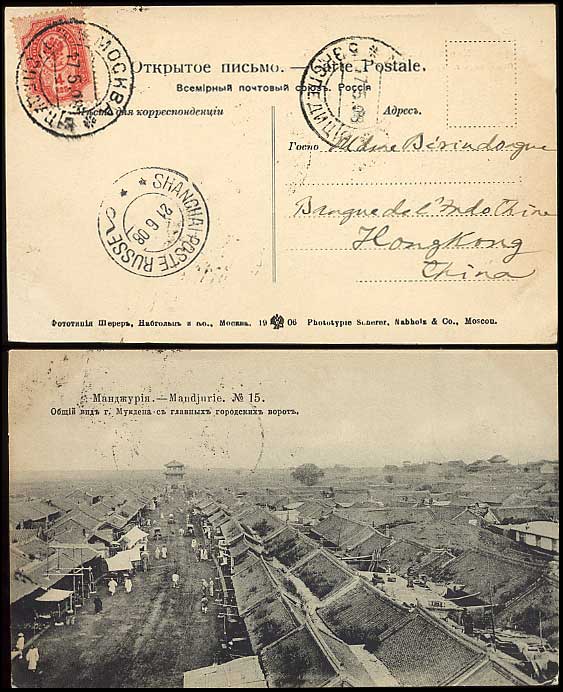 Открытое письмо. — Carte Postale.
Всемірный почтовый союзъ. Россія
Мѣсто для корреспонденціи
Адресъ.
МОСКВА
Госпо Madame
Banque de l'Indo Chine
HongKong
China
SHANGHAI-POSTE RUSSE
21 6 08
Фототипія Шереръ, Набгольцъ и Ко., Москва. 19 06 Phototypie Scherer, Nabholz & Co., Moscou.
Манджурія.—Mandjurie. № 15.
Общій видъ г. Мукдена съ главныхъ городскихъ воротъ.